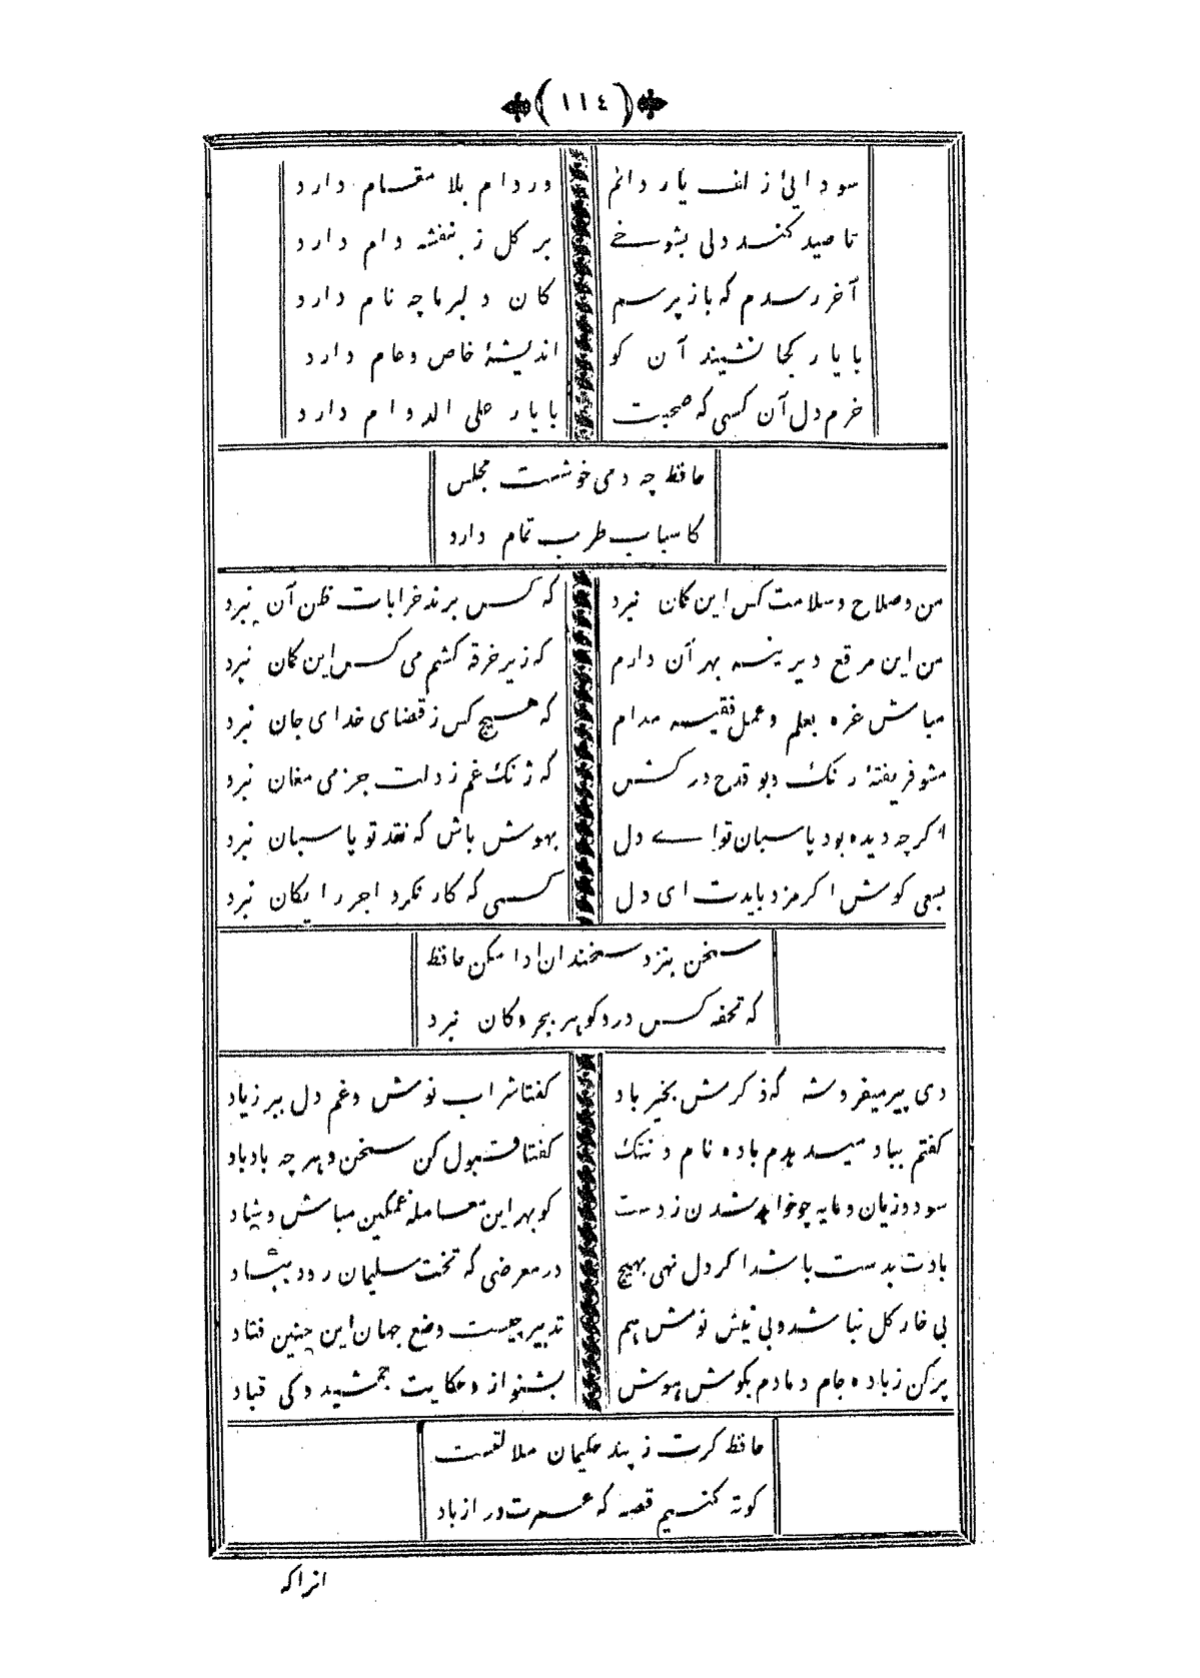 (١١٤)
سودائی زلف یار دائم دردام بلا مقام دارد
تا صید کند دلی بشوخے بر کل ز بنفشه دام دارد
آخر رسدم که باز پرسم کان دلبر ما چه نام دارد
با یار کجا نشیند آن کو اندیشهٔ خاص و عام دارد
خرم دل آن کسی که صحبت با یار علی الدوام دارد
حافظ چه دمی خوشست مجلس
کاسباب طرب تمام دارد
من و صلاح و سلامت کس این کان نبرد که کس برند خرابات ظن آن نبرد
من این مرقع دیرینه بهر آن دارم که زیر خرقه کشم می کس این کان نبرد
مباش غره بعلم و عمل فقیه مدام که هیچ کس ز قضای خدای جان نبرد
مشو فریفتهٔ رنك و بو قدح در کش که ژنك غم ز دلت جز می مغان نبرد
اکر چه دیده بود پاسبان تو اے دل بهوش باش که نقد تو پاسبان نبرد
بسعی کوش اکر مزد بایدت ای دل کسی که کار نکرد اجر رایکان نبرد
سخن بنزد سخندان ادا مکن حافظ
که تحفه کس در و کوهر ببحر و کان نبرد
دی پیر میفروش که ذکرش بخیر باد کفتا شراب نوش و غم دل ببر زیاد
کفتم بباد میدهدم باده نام و ننك کفتا قبول کن سخن و هر چه باد باد
سود و زیان و مایه چو خواهد شدن ز دست کو بهر این معامله غمکین مباش و شاد
بادت بدست باشد اکر دل نهی بهیچ در معرضی که تخت سلیمان رود بباد
بی خار کل نباشد و بی نیش نوش هم تدبیر چیست وضع جهان این چنین فتاد
پر کن ز باده جام و دمادم بکوش هوش بشنو از و حکایت جمشید و کی قباد
حافظ کرت ز پند حکیمان ملالتست
کوته کنیم قصه که عمرت دراز باد